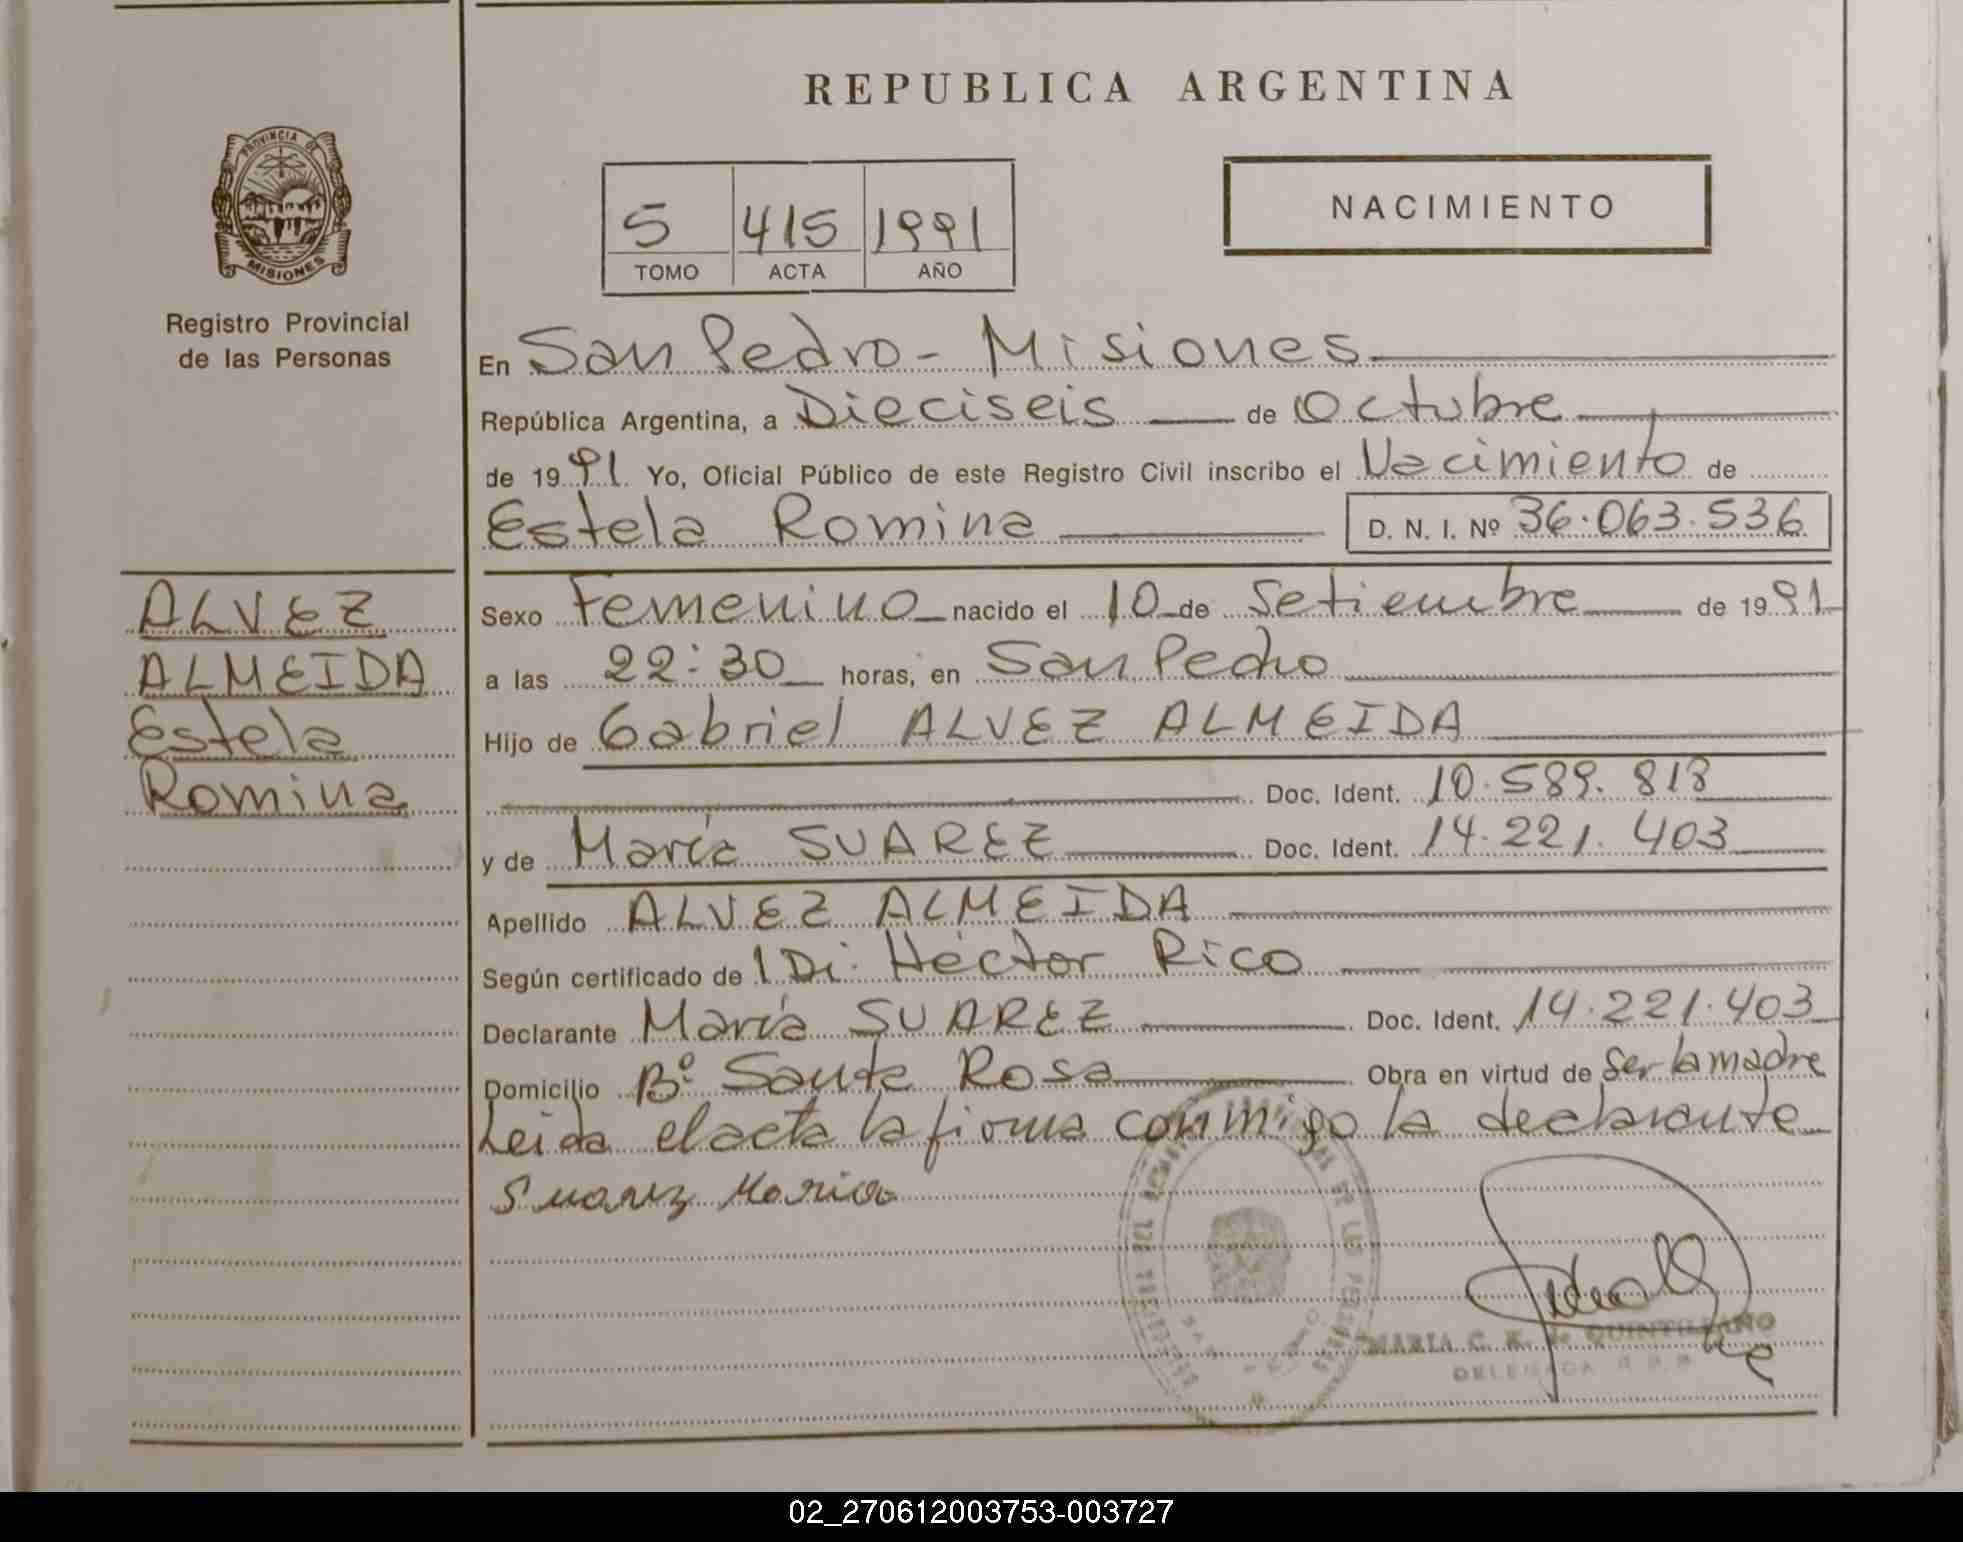 REPUBLICA ARGENTINA
PROVINCIA DE
MISIONES
Registro Provincial
de las Personas
5 415 1991
TOMO ACTA AÑO
NACIMIENTO
En San Pedro - Misiones
República Argentina, a Dieciseis de Octubre
de 1991 Yo, Oficial Público de este Registro Civil inscribo el Nacimiento de
Estela Romina D. N. I. Nº 36.063.536
ALVEZ
ALMEIDA
Estela
Romina
Sexo Femenino nacido el 10 de Setiembre de 1991
a las 22:30 horas, en San Pedro
Hijo de Gabriel ALVEZ ALMEIDA
Doc. Ident. 10.589.818
y de María SUAREZ Doc. Ident. 14.221.403
Apellido ALVEZ ALMEIDA
Según certificado de Héctor Rico
Declarante María SUAREZ Doc. Ident. 14.221.403
Domicilio Bº Santa Rosa Obra en virtud de Ser la madre
Leida el acta la firma conmigo la declarante
Suarez Maria
MARIA C. K. de QUINTILLANO
DELEGADA
02_270612003753-003727